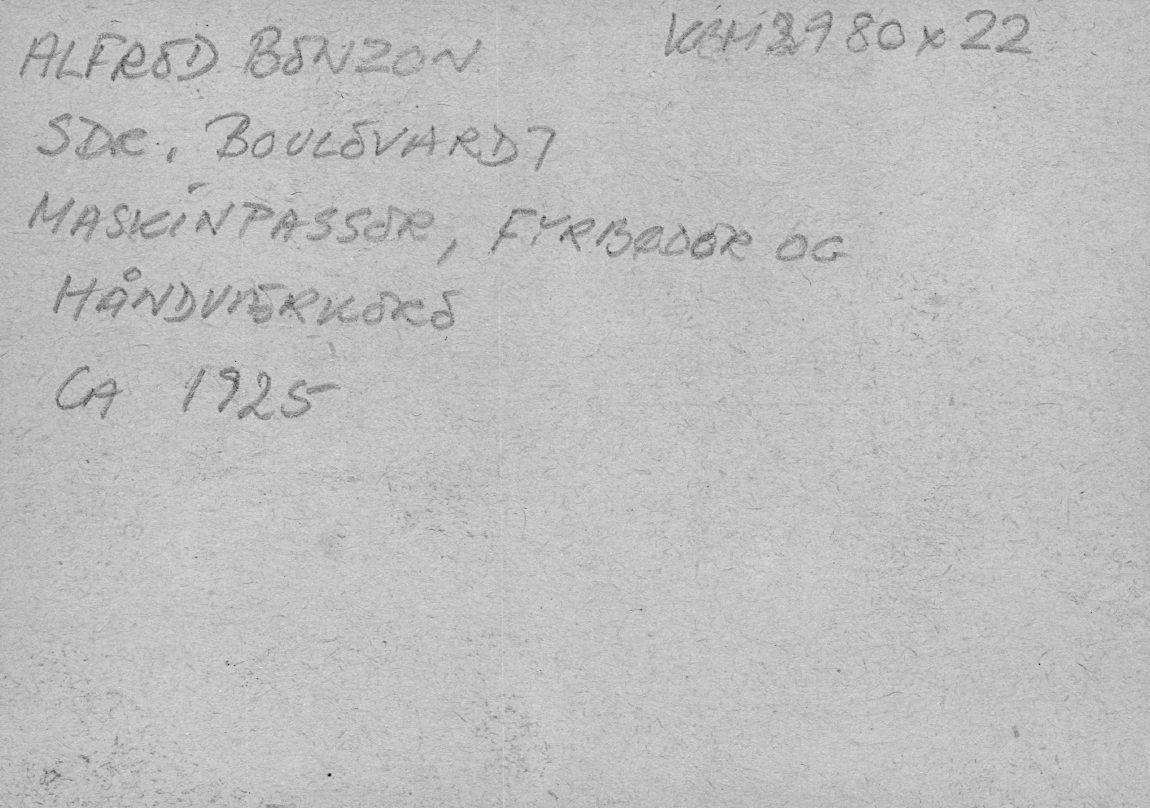 ALFRED BENZON
KBM 2980x22
SDR. BOULEVARD 7
MASKINPASSER, FYRBØDER OG
HÅNDVÆRKERE
CA 1925